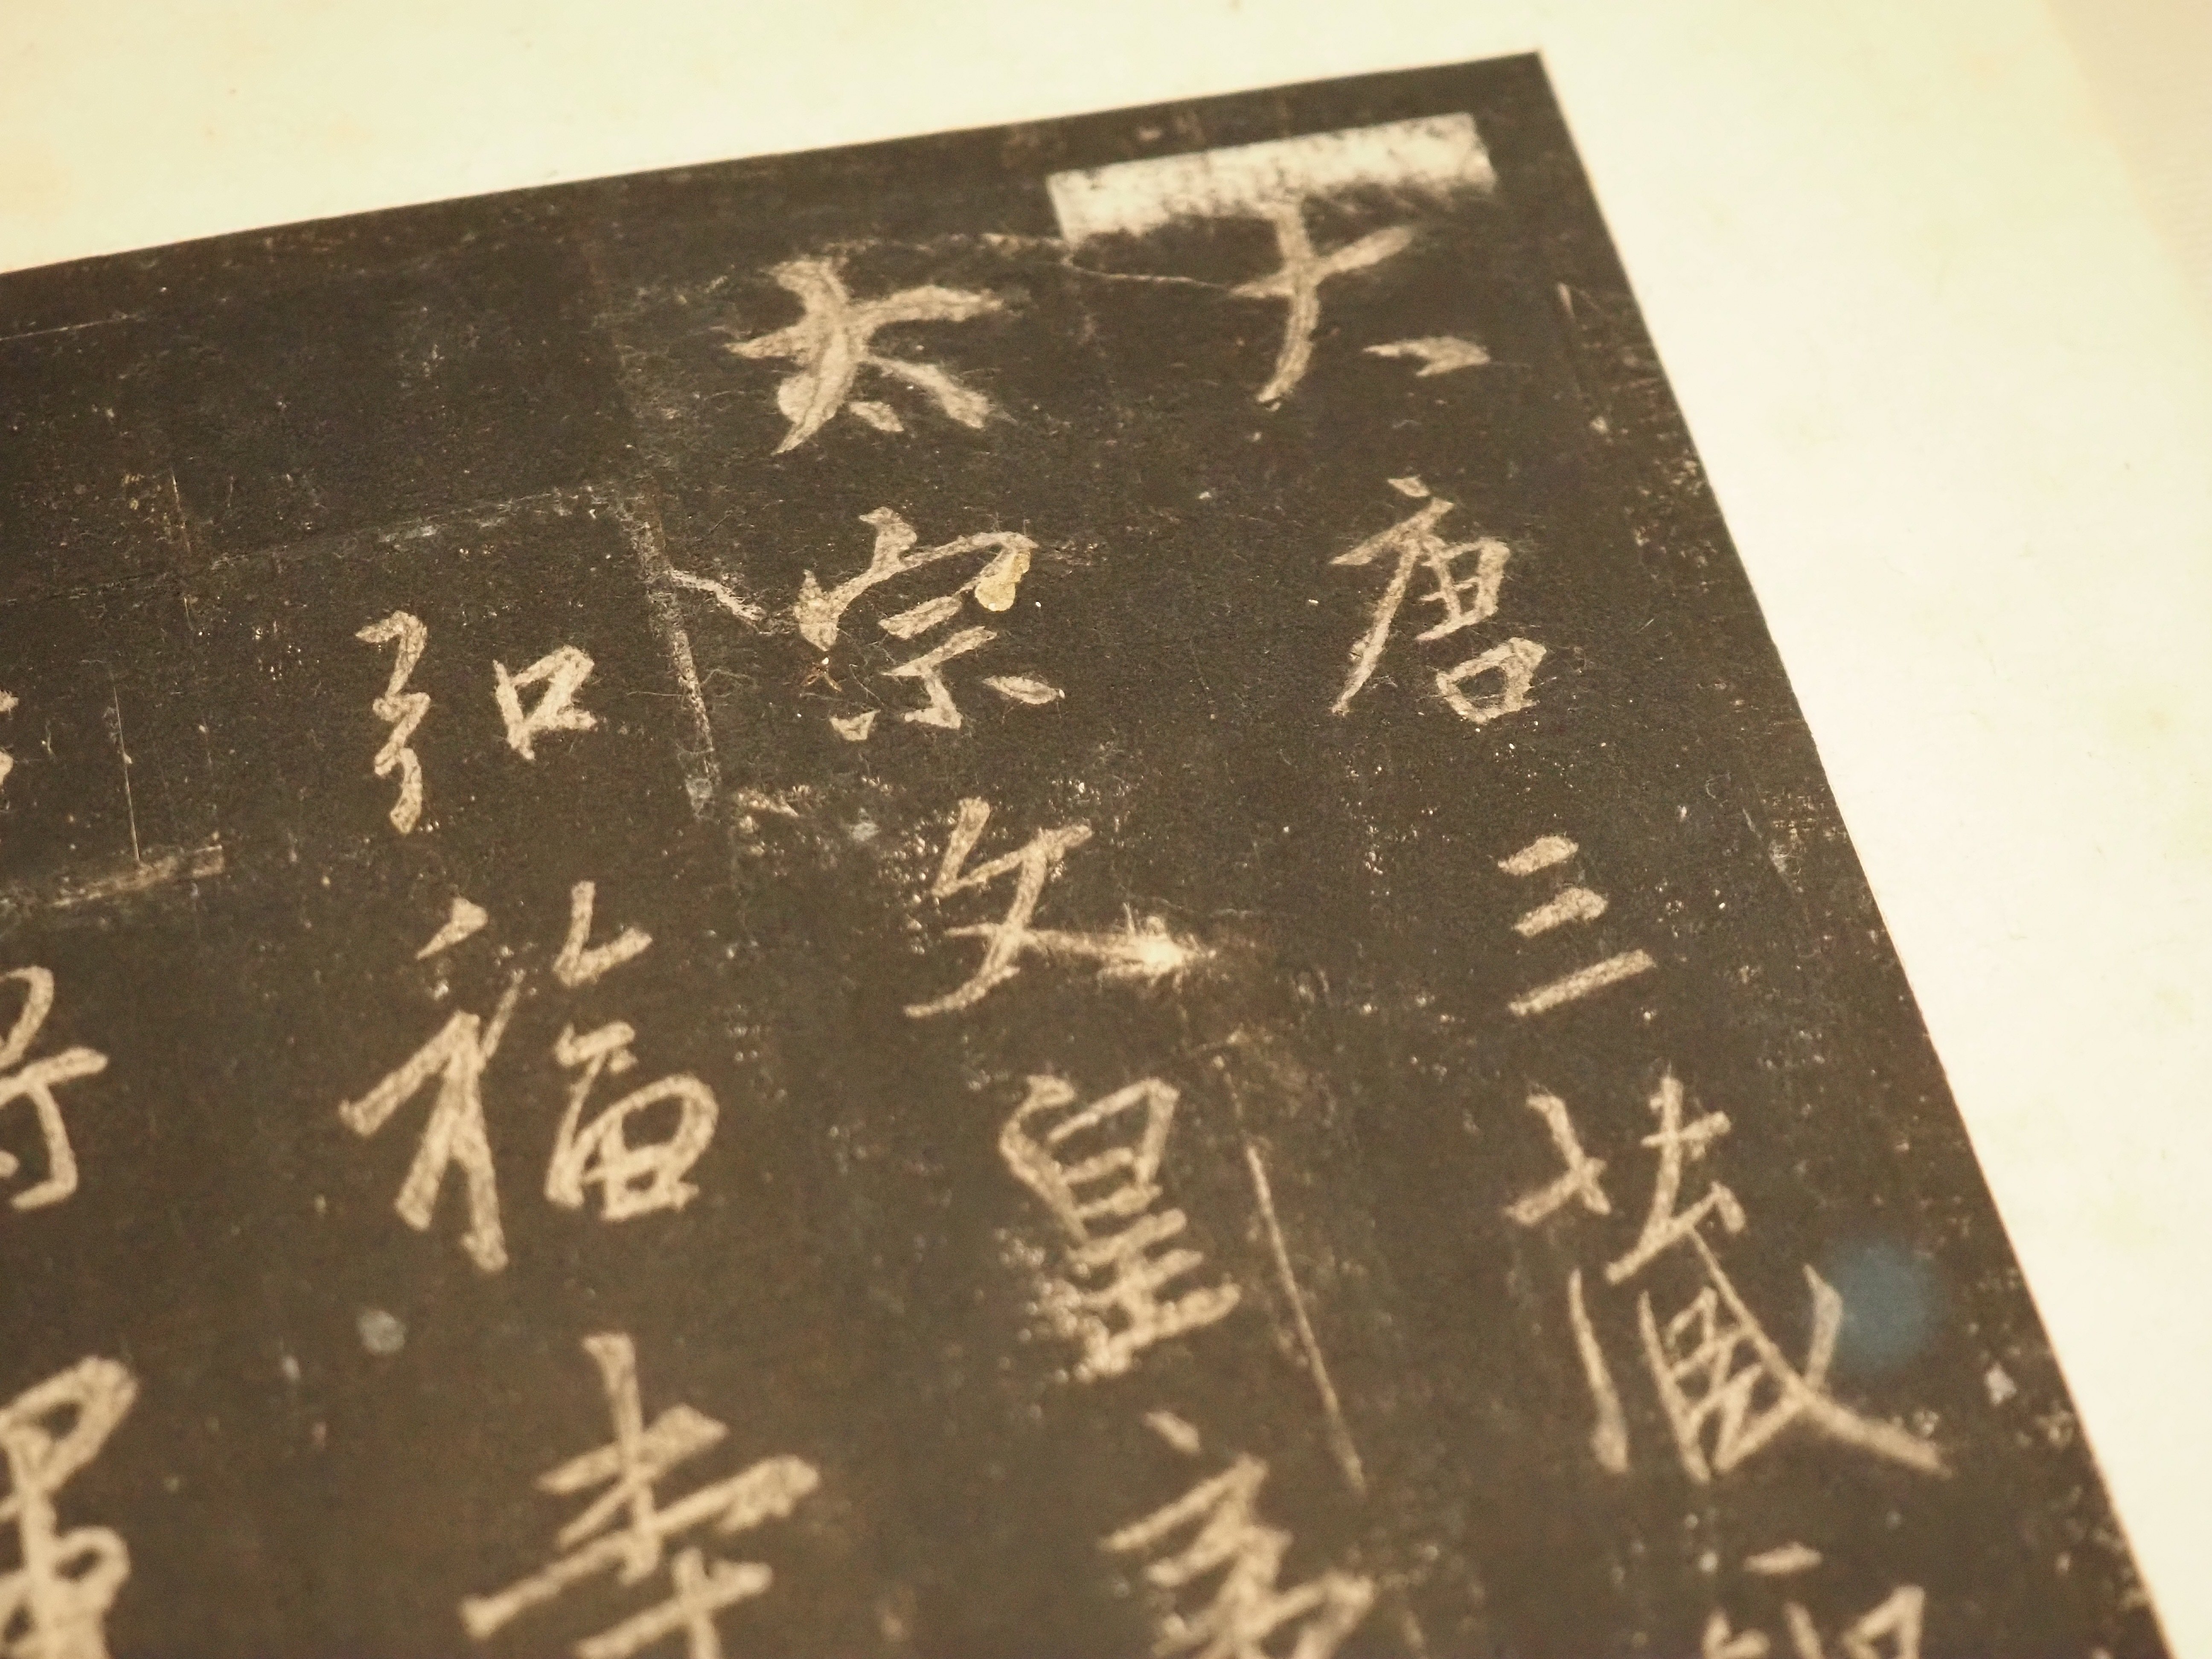 大唐三藏
太宗文皇帝
弘福寺
將軍